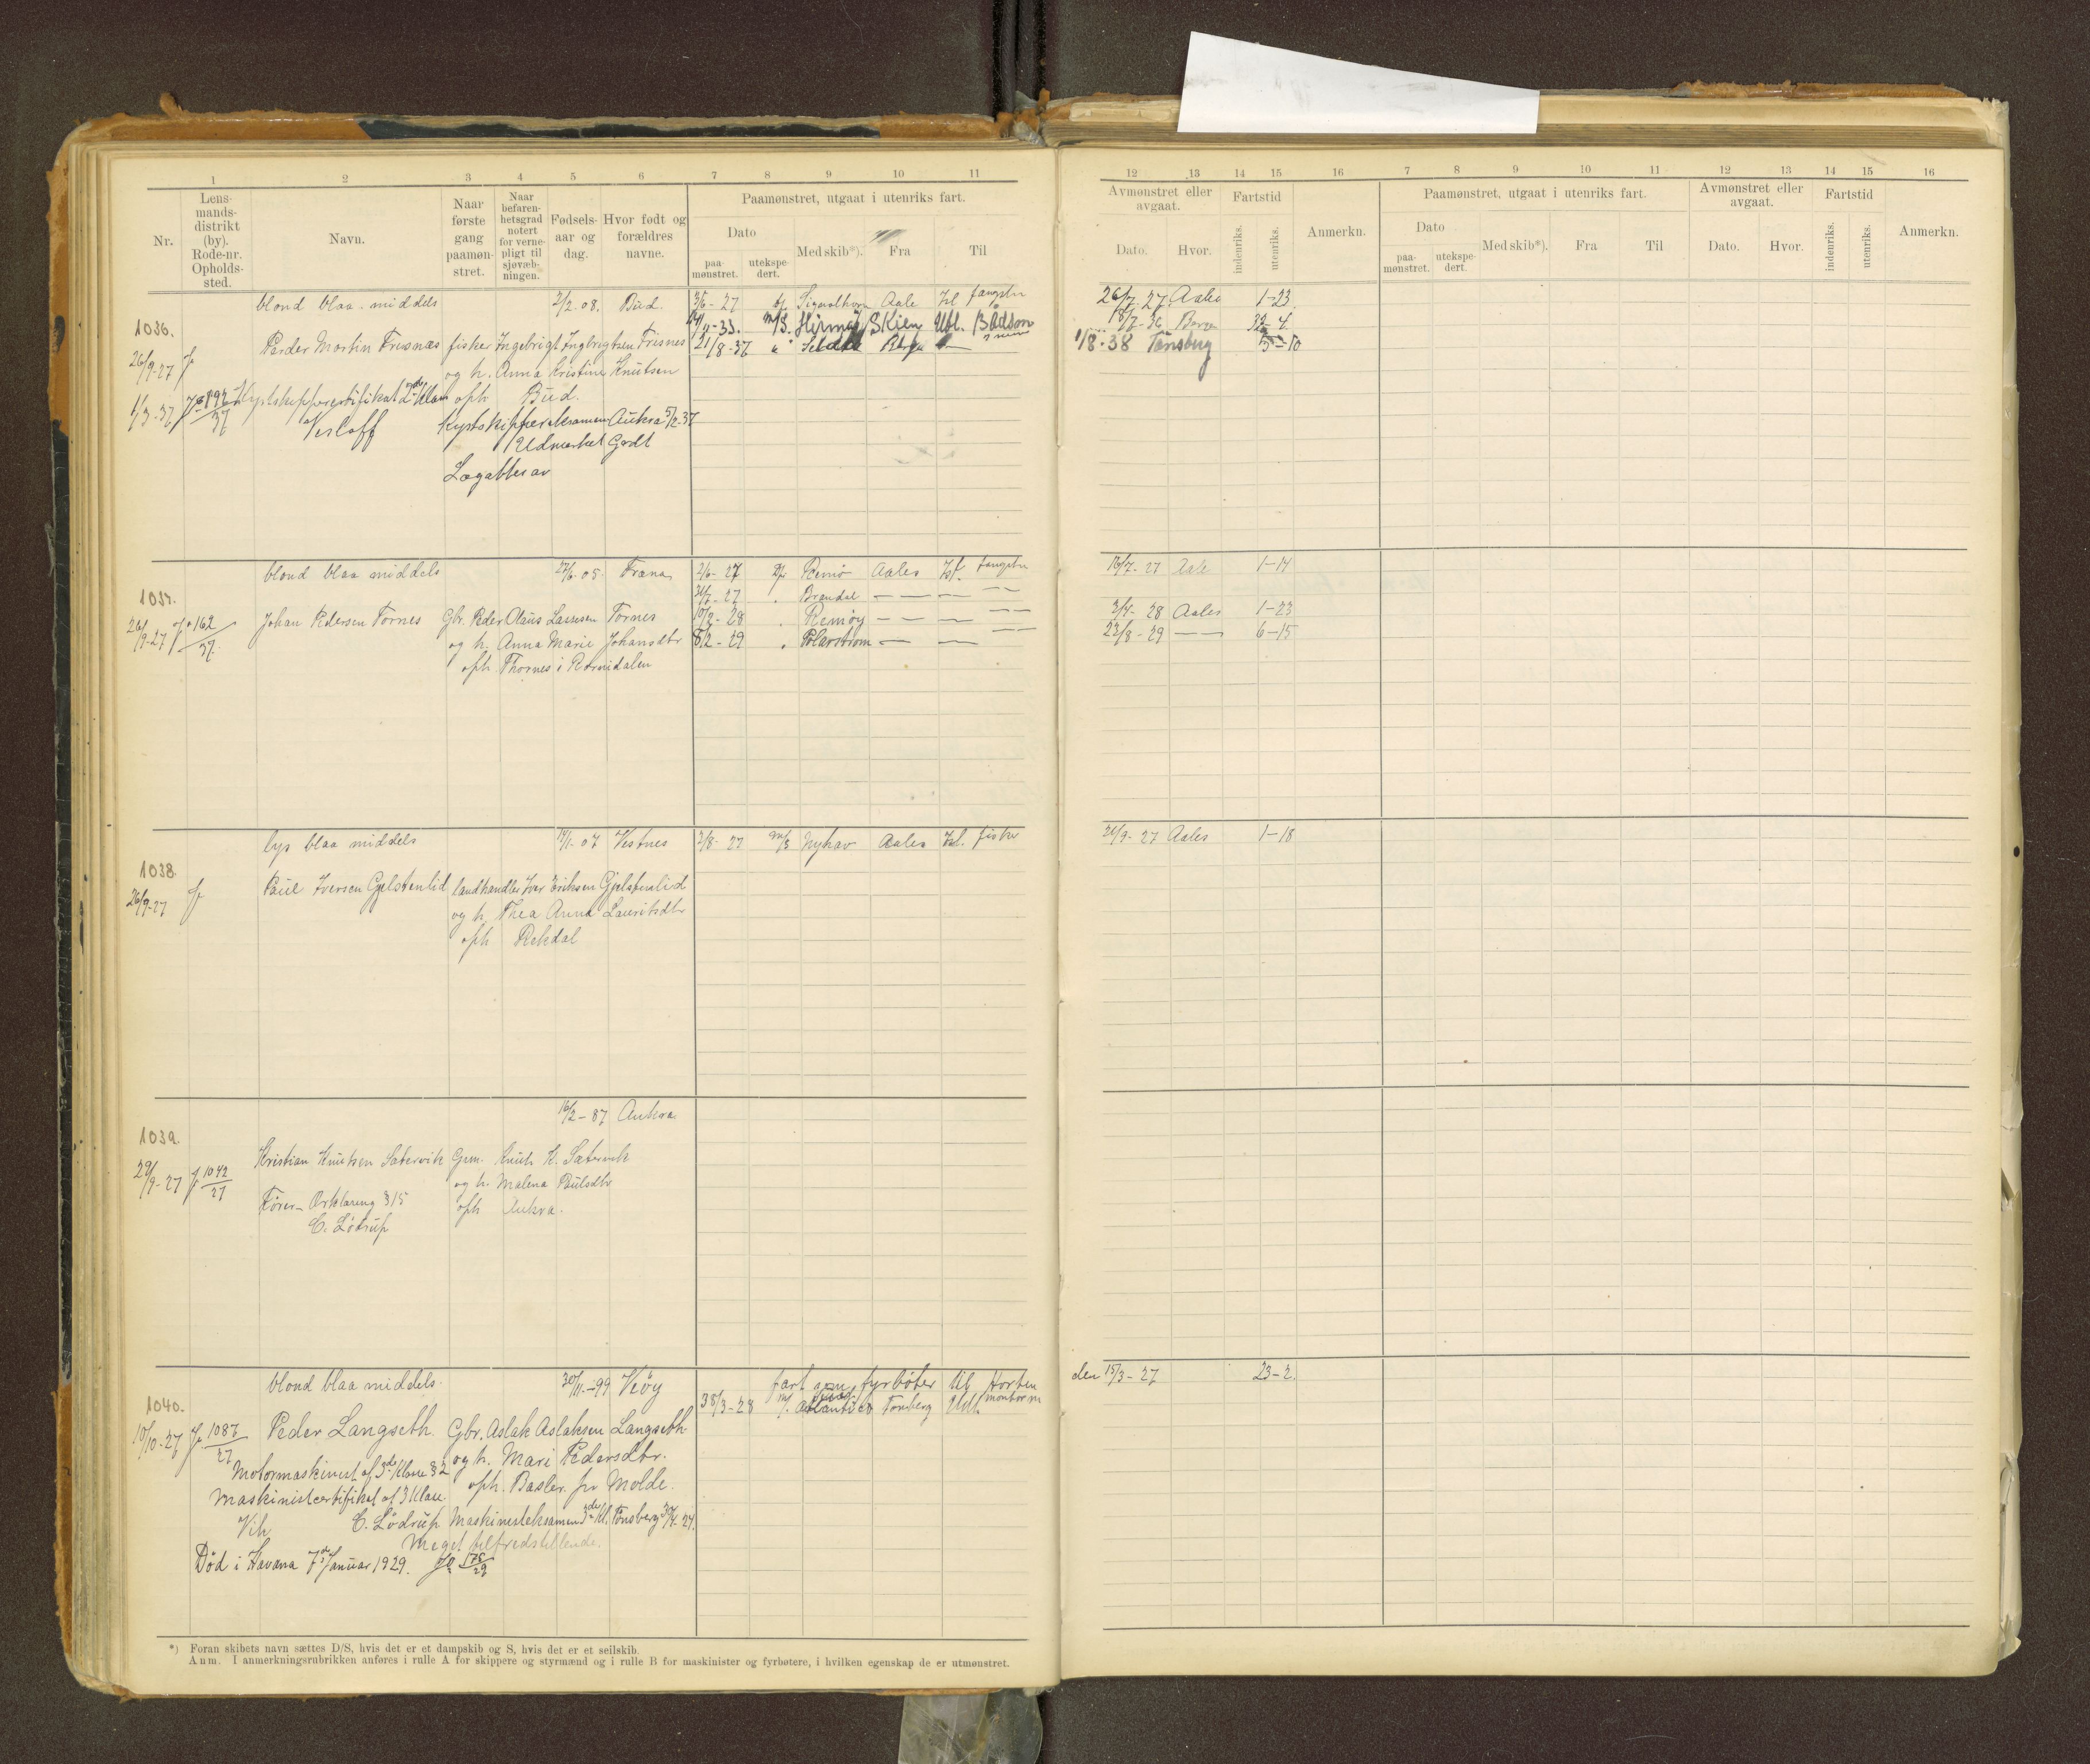 1 2 3 4 5 6 7 8 9 10 11
Nr.
Lens-
mands-
distrikt
(by).
Rode-nr.
Opholds-
sted.
Navn.
Naar
første
gang
paamøn-
stret.
Naar
befaren-
hetsgrad
notert
for verne-
pligt til
sjøvæb-
ningen.
Fødsels-
aar og
dag.
Hvor født og
forældres
navne.
Paamønstret, utgaat i utenriks fart.
Dato
paa-
mønstret.
utekspe-
dert.
Med skib*).
Fra
Til
12 13 14 15 16 7 8 9 10 11 12 13 14 15 16
Avmønstret eller
avgaat.
Dato. Hvor.
Fartstid
indenriks.
utenriks.
Anmerkn.
Paamønstret, utgaat i utenriks fart.
Dato
paa-
mønstret.
utekspe-
dert.
Med skib*). Fra Til
Avmønstret eller
avgaat.
Dato. Hvor.
Fartstid
indenriks.
utenriks.
Anmerkn.
blond blaa middels 2/2.08. Bud. 3/6-27 Signalhorn Aale Isl fangstn 26/7.27. Aales 1-23
1036. 14/11-33. M/S. Skien Utl. 18/7-36 Bergen 32-4.
26/9-27 Peder Martin Frisnæs fisker Ingebrigt Ingbrigtsen Frisnes 21/8-36 1/8.38 Tønsberg
og h. Anna Kristine Knutsen
1/3-37 Kystskippercertifikat 2den Klasse oph Bud.
Kystskippereksamen Aukra 5/2-37
Udmærket Godt
blond blaa middels 27/6-05. Fræna 2/6-27 Remø Aales fangstn 16/7-27 Aale 1-14
1037. 27 Brandal
26/9-27 162/37 Johan Pedersen Tornes Gbr. Peder Olaus Larssen Tornes 28 Remøy 3/4-28 Aales 1-23
og h. Anna Marie Johansdtr 8/2-29 Polarstrøm 22/8-29 6-15
oph Thornes i Romsdalen
lys blaa middels 14/1-07 Vestnes 2/8-27 M/S Nyhav Aales Isl. fiske 21/9-27 Aales 1-18
1038.
26/9-27 Paul Iversen Gjelstenlid landhandler Iver Eriksen Gjelstenlid
og h. Thea Anna Lauritsdtr
oph Rekdal
16/2-87 Aukra
1039.
29/9-27 1042/27 Kristian Knutsen Sætervik Gbm. Knut K. Sætervik
og h. Malena Paulsdtr
Fører- Erklæring §15 oph Aukra.
C. Lødrup
blond blaa middels. 30/11-99 Veøy fart som fyrbøter til Horten den 15/3-27 23-2.
1040. 3/3-28 M/. Atlantic Tønsberg Utl. motorm
10/10-27 1087/27 Peder Langseth. Gbr. Aslak Aslaksen Langseth
og h. Mari Pedersdtr.
Motormaskinist af 3die Klasse §2
oph. Basler. pr Molde.
Maskinistcertifikat af 3 Klasse.
C. Lødrup Maskinisteksamen 3die Kl. Tønsberg 30/4-27.
Meget tilfredstillende.
Død i Havana 7de Januar 1929.
*) Foran skibets navn sættes D/S, hvis det er et dampskib og S, hvis det er et seilskib.
Anm. I anmerkningsrubrikken anføres i rulle A for skippere og styrmænd og i rulle B for maskinister og fyrbøtere, i hvilken egenskap de er utmønstret.